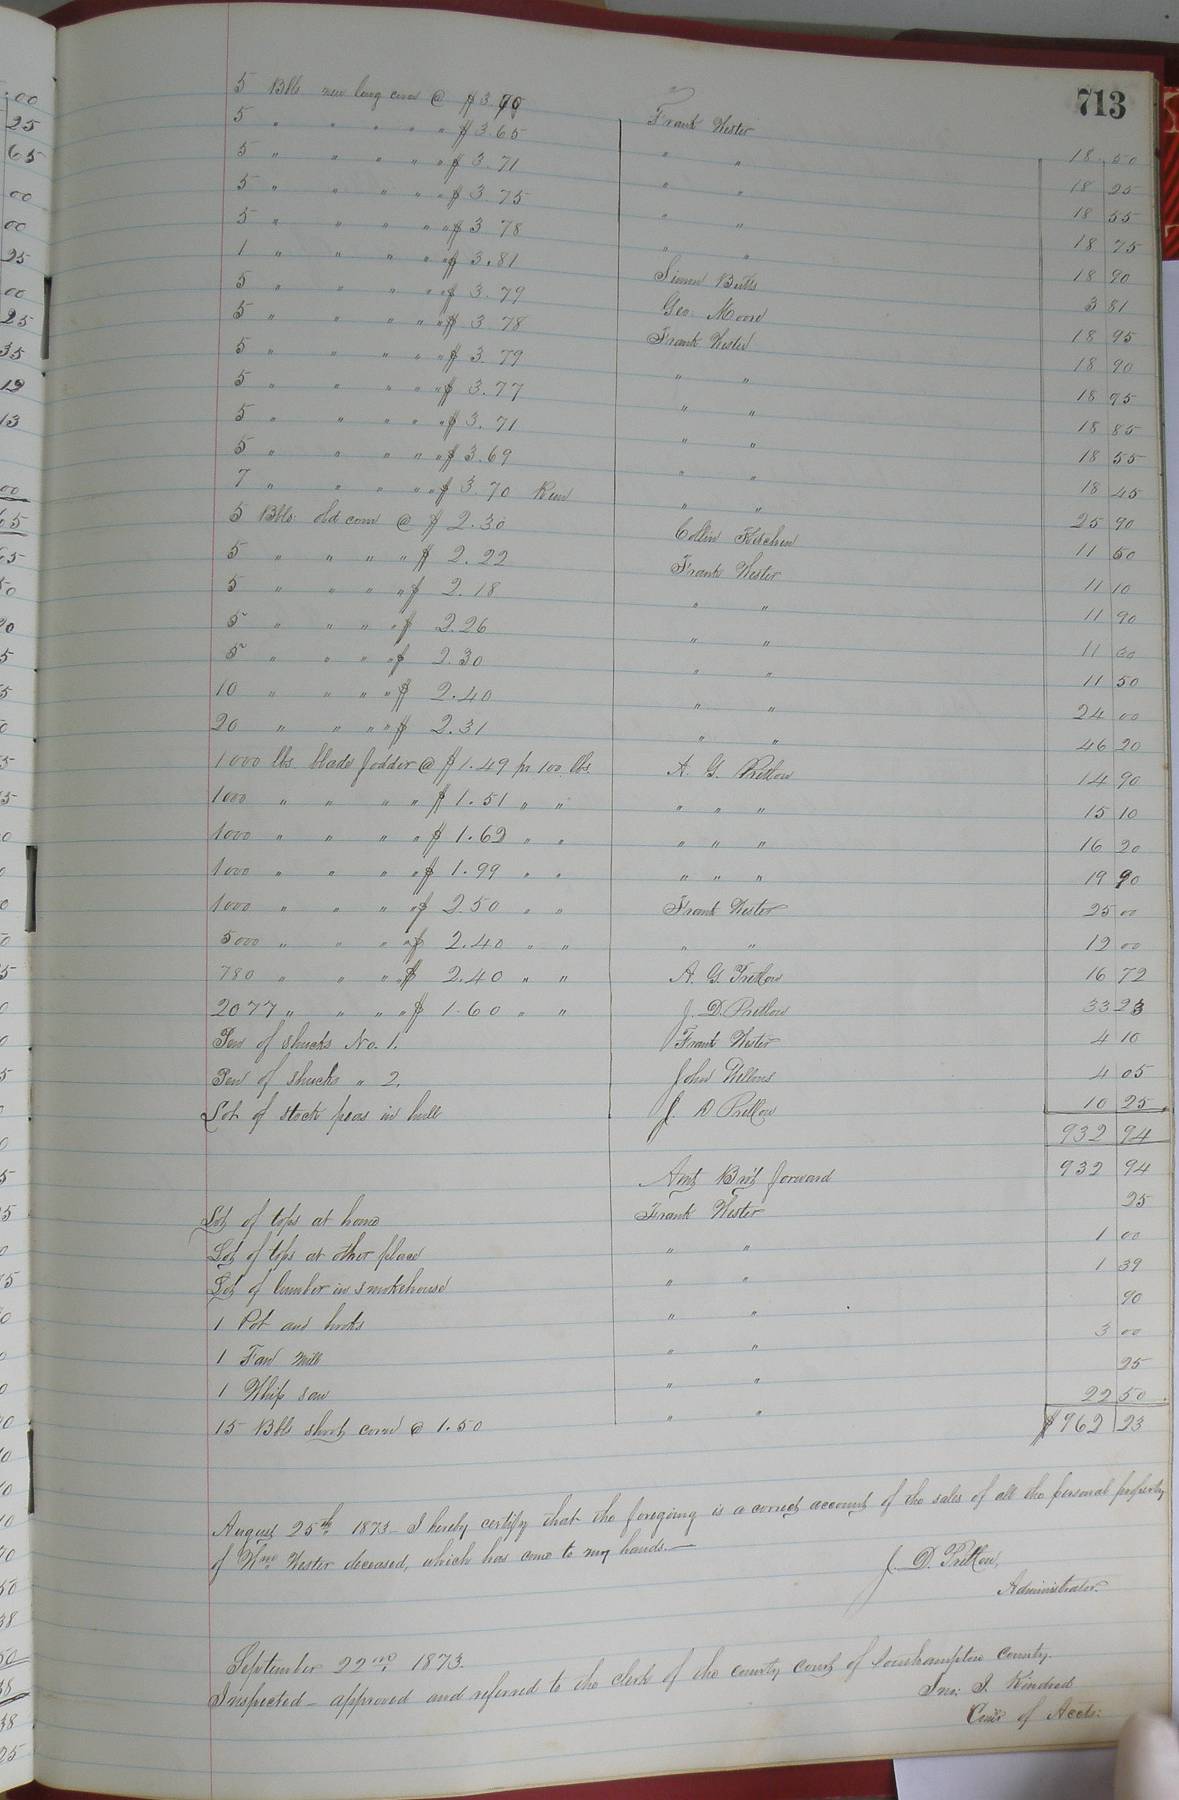 713
5 Bbls new long corn @ $3.70 Frank Wester 18 50
5 " " " " " $3.65 " " 18 25
5 " " " " " $3.71 " " 18 55
5 " " " " " $3.75 " " 18 75
5 " " " " " $3.78 " " 18 90
1 " " " " " $3.81 Simon Butts 3 81
5 " " " " " $3.79 Geo. Moore 18 95
5 " " " " " $3.78 Frank Wester 18 90
5 " " " " " $3.79 " " 18 95
5 " " " " " $3.77 " " 18 85
5 " " " " " $3.71 " " 18 55
5 " " " " " $3.69 " " 18 45
7 " " " " " $3.70 Rem " " 25 90
5 Bbls old corn @ $2.30 Collin Kitchen 11 50
5 " " " " $2.22 Frank Wester 11 10
5 " " " " $2.18 " " 11 90
5 " " " " $2.26 " " 11
5 " " " " $2.30 " " 11 50
10 " " " " $2.40 " " 24 00
20 " " " " $2.31 " " 46 20
1000 lbs blade fodder @ $1.49 pr 100 lbs. A. G. Pretlow 14 90
1000 " " " " $1.51 " " " " " 15 10
1000 " " " " $1.62 " " " " " 16 20
1000 " " " " $1.99 " " " " " 19 90
1000 " " " " $2.50 " " Frank Wester 25 00
5000 " " " " $2.40 " " " " 12 00
780 " " " " $2.40 " " A. G. Pretlow 16 72
2077 " " " " $1.60 " " J. D. Pretlow 33 23
Pen of shucks No. 1. Frank Wester 4 10
Pen of shucks " 2. John Wellons 4 05
Lot of stock peas in hull J. D. Pretlow 10 25
932 94
Amt Br't forward 932 94
Lot of tops at home Frank Wester 25
Lot of tops at other place " " 1 00
Lot of lumber in smokehouse " " 1 39
1 Pot and hooks " " 90
1 Fan mill " " 3 00
1 Whip saw " " 25
15 Bbls short corn @ 1.50 " " 22 50
$962 23
August 25th 1873 - I hereby certify that the foregoing is a correct account of the sales of all the personal property
of Wm Wester deceased, which has come to my hands.—
J. D. Pretlow,
Administrator.
September 22nd 1873.
Inspected - approved and referred to the clerk of the county court of Southampton county.
Jno: J. Kindred
Com'r of Accts: